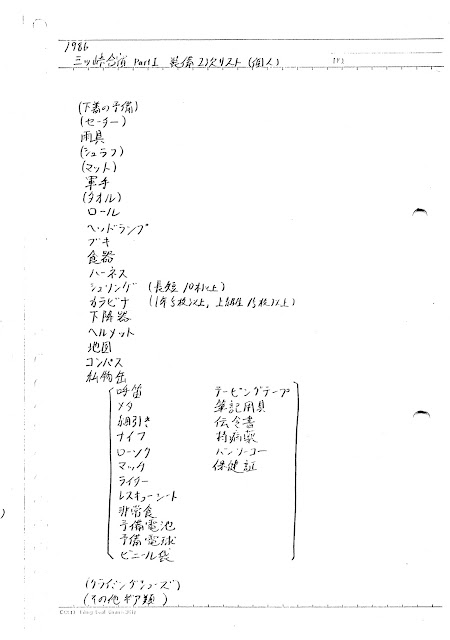 1986
三ッ峠合宿 Part I 装備 2次リスト (個人)
(下着の予備)
(セーター)
雨具
(シュラフ)
(マット)
軍手
(タオル)
ロール
ヘッドランプ
ブキ
食器
ハーネス
シュリンゲ (長短10本以上)
カラビナ (1年5枚以上, 上級生15枚以上)
下降器
ヘルメット
地図
コンパス
私物缶
呼笛 テーピングテープ
メタ 筆記用具
細引き 伝令書
ナイフ 持病薬
ローソク バンソーコー
マッチ 保健証
ライター
レスキューシート
非常食
予備電池
予備電球
ビニール袋
(クライミングシューズ)
(その他ギア類)